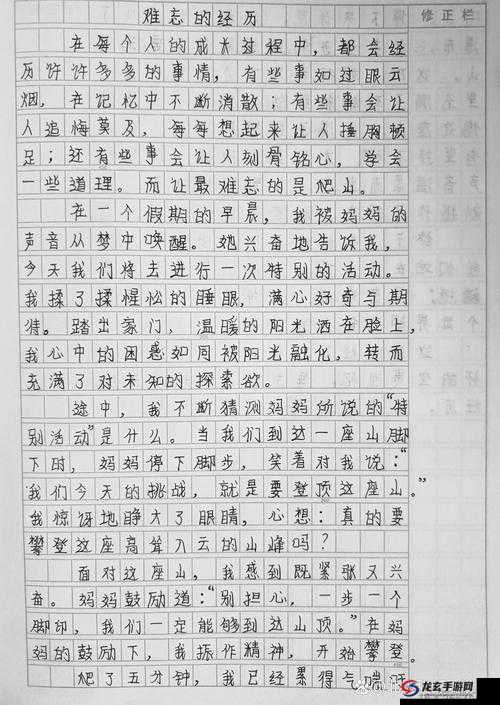 难忘的经历
修正栏
在每个人的成长过程中，都会经
历许许多多的事情，有些事如过眼云
烟，在记忆中不断消散；有些事会让
人追悔莫及，每每想起来让人捶胸顿
足；还有些事会让人刻骨铭心，学会
一些道理。而让最难忘的是爬山。
在一个假期的早晨，我被妈妈的
声音从梦中唤醒。她兴奋地告诉我，
今天我们将去进行一次特别的活动。
我揉了揉惺忪的睡眼，满心好奇与期
待。踏出家门，温暖的阳光洒在脸上，
我心中的困惑如同被阳光融化，转而
充满了对未知的探索欲。
途中，我不断猜测妈妈所说的“特
别活动”是什么。当我们到达一座山脚
下时，妈妈停下脚步，笑着对我说：“
我们今天的挑战，就是要登顶这座山。”
我惊讶地睁大了眼睛，心想：真的要
攀登这座高耸入云的山峰吗？
面对这座山，我感到既紧张又兴
奋。妈妈鼓励道：“别担心，一步一个
脚印，我们一定能够到达山顶。”在妈
妈的鼓励下，我振作精神，开始攀登。
爬了五分钟，我已经累得气喘吁
龙玄手游网